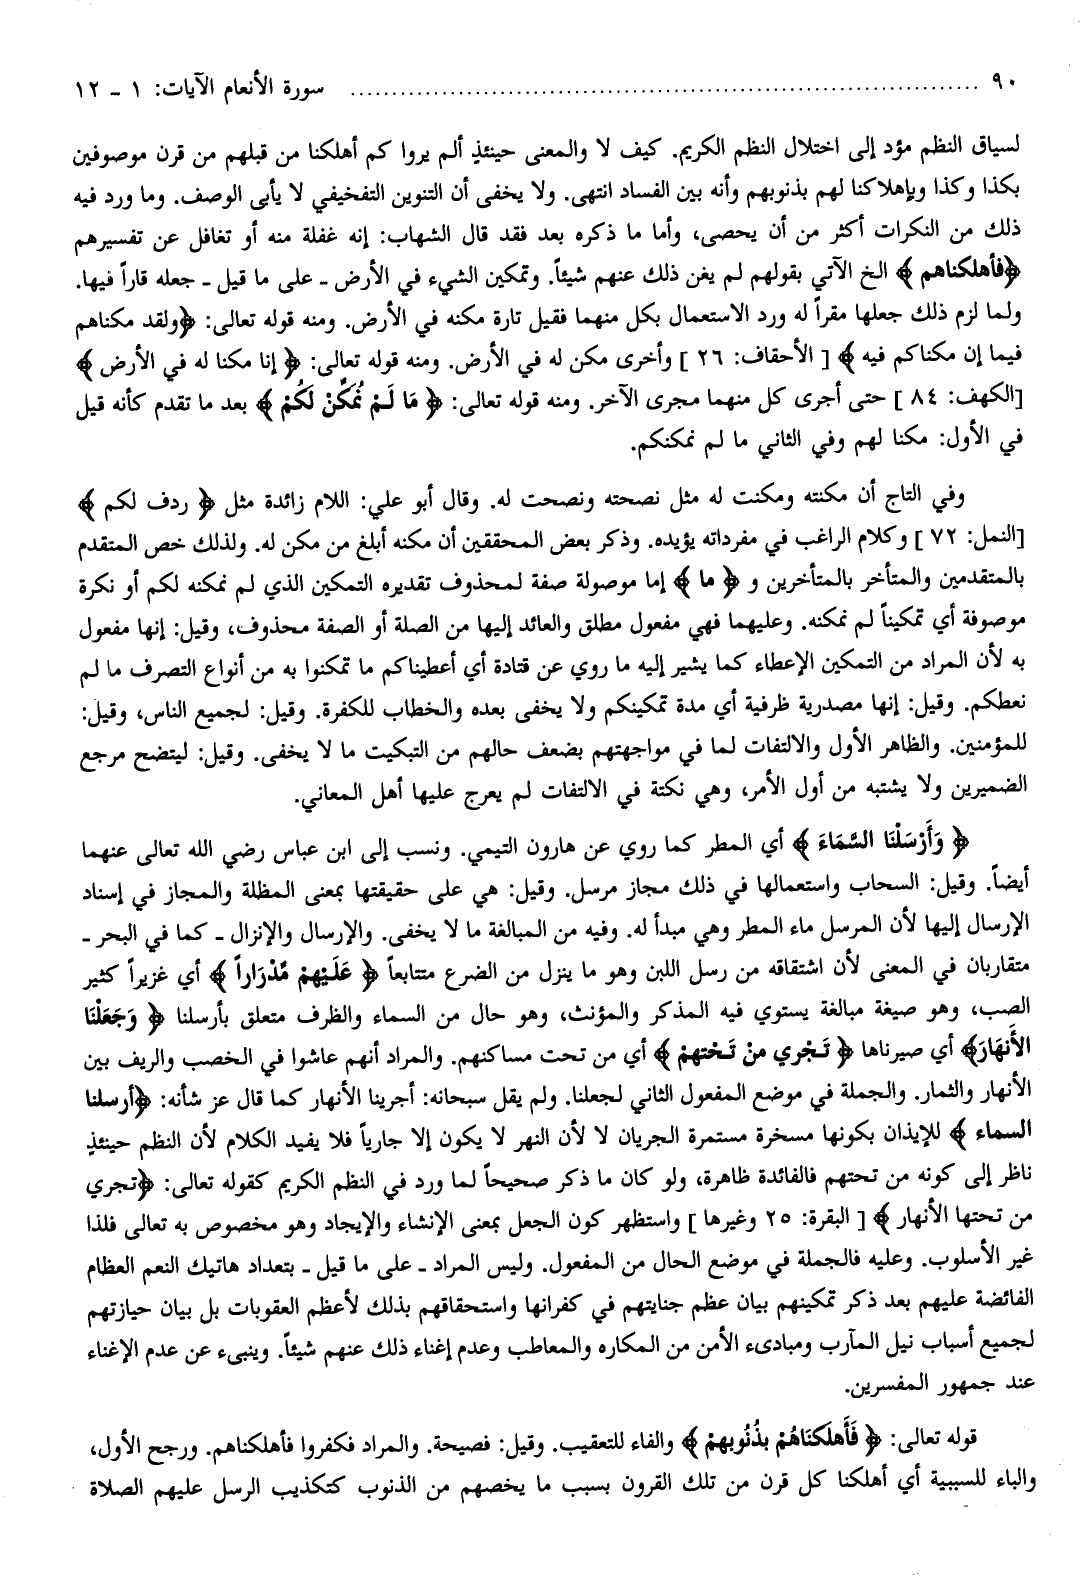 ٩٠ ........ سورة الأنعام الآيات: ١ ـ ١٢
لسياق النظم مؤد إلى اختلال النظم الكريم. كيف لا والمعنى حينئذٍ ألم يروا كم أهلكنا من قبلهم من قرن موصوفين
بكذا وكذا وبإهلاكنا لهم بذنوبهم وأنه بين الفساد انتهى. ولا يخفى أن التنوين التفخيفي لا يأبى الوصف. وما ورد فيه
ذلك من النكرات أكثر من أن يحصى، وأما ما ذكره بعد فقد قال الشهاب: إنه غفلة منه أو تغافل عن تفسيرهم
﴿فأهلكناهم﴾ الخ الآتي بقولهم لم يغن ذلك عنهم شيئاً. وتمكين الشيء في الأرض ـ على ما قيل ـ جعله قاراً فيها.
ولما لزم ذلك جعلها مقراً له ورد الاستعمال بكل منهما فقيل تارة مكنه في الأرض. ومنه قوله تعالى: ﴿ولقد مكناهم
فيما إن مكناكم فيه﴾ [ الأحقاف: ٢٦ ] وأخرى مكن له في الأرض. ومنه قوله تعالى: ﴿إنا مكنا له في الأرض﴾
[الكهف: ٨٤ ] حتى أجرى كل منهما مجرى الآخر. ومنه قوله تعالى: ﴿مَا لَمْ نُمَكِّنْ لَكُمْ﴾ بعد ما تقدم كأنه قيل
في الأول: مكنا لهم وفي الثاني ما لم نمكنكم.
وفي التاج أن مكنته ومكنت له مثل نصحته ونصحت له. وقال أبو علي: اللام زائدة مثل ﴿ردف لكم﴾
[النمل: ٧٢ ] وكلام الراغب في مفرداته يؤيده. وذكر بعض المحققين أن مكنه أبلغ من مكن له. ولذلك خص المتقدم
بالمتقدمين والمتأخر بالمتأخرين و ﴿ما﴾ إما موصولة صفة لمحذوف تقديره التمكين الذي لم نمكنه لكم أو نكرة
موصوفة أي تمكيناً لم نمكنه. وعليهما فهي مفعول مطلق والعائد إليها من الصلة أو الصفة محذوف، وقيل: إنها مفعول
به لأن المراد من التمكين الإعطاء كما يشير إليه ما روي عن قتادة أي أعطيناكم ما تمكنوا به من أنواع التصرف ما لم
نعطكم. وقيل: إنها مصدرية ظرفية أي مدة تمكينكم ولا يخفى بعده والخطاب للكفرة. وقيل: لجميع الناس، وقيل:
للمؤمنين. والظاهر الأول والالتفات لما في مواجهتهم بضعف حالهم من التبكيت ما لا يخفى. وقيل: ليتضح مرجع
الضميرين ولا يشتبه من أول الأمر، وهي نكتة في الالتفات لم يعرج عليها أهل المعاني.
﴿وَأَرْسَلْنَا السَّمَاءَ﴾ أي المطر كما روي عن هارون التيمي. ونسب إلى ابن عباس رضي الله تعالى عنهما
أيضاً. وقيل: السحاب واستعمالها في ذلك مجاز مرسل. وقيل: هي على حقيقتها بمعنى المظلة والمجاز في إسناد
الإرسال إليها لأن المرسل ماء المطر وهي مبدأ له. وفيه من المبالغة ما لا يخفى. والإرسال والإنزال ـ كما في البحر ـ
متقاربان في المعنى لأن اشتقاقه من رسل اللبن وهو ما ينزل من الضرع متتابعاً ﴿عَلَيْهِمْ مِّدْرَاراً﴾ أي غزيراً كثير
الصب، وهو صيغة مبالغة يستوي فيه المذكر والمؤنث، وهو حال من السماء والظرف متعلق بأرسلنا ﴿وَجَعَلْنَا
الأَنهَارَ﴾ أي صيرناها ﴿تَجْرِي مِنْ تَحْتِهِمْ﴾ أي من تحت مساكنهم. والمراد أنهم عاشوا في الخصب والريف بين
الأنهار والثمار. والجملة في موضع المفعول الثاني لجعلنا. ولم يقل سبحانه: أجرينا الأنهار كما قال عز شأنه: ﴿أرسلنا
السماء﴾ للإيذان بكونها مسخرة مستمرة الجريان لا لأن النهر لا يكون إلا جارياً فلا يفيد الكلام لأن النظم حينئذٍ
ناظر إلى كونه من تحتهم فالفائدة ظاهرة، ولو كان ما ذكر صحيحاً لما ورد في النظم الكريم كقوله تعالى: ﴿تجري
من تحتها الأنهار﴾ [ البقرة: ٢٥ وغيرها ] واستظهر كون الجعل بمعنى الإنشاء والإيجاد وهو مخصوص به تعالى فلذا
غير الأسلوب. وعليه فالجملة في موضع الحال من المفعول. وليس المراد ـ على ما قيل ـ بتعداد هاتيك النعم العظام
الفائضة عليهم بعد ذكر تمكينهم بيان عظم جنايتهم في كفرانها واستحقاقهم بذلك لأعظم العقوبات بل بيان حيازتهم
لجميع أسباب نيل المآرب ومبادىء الأمن من المكاره والمعاطب وعدم إغناء ذلك عنهم شيئاً. وينبىء عن عدم الإغناء
عند جمهور المفسرين.
قوله تعالى: ﴿فَأَهلَكنَاهُمْ بِذُنُوبِهِمْ﴾ والفاء للتعقيب. وقيل: فصيحة. والمراد فكفروا فأهلكناهم. ورجح الأول،
والباء للسببية أي أهلكنا كل قرن من تلك القرون بسبب ما يخصهم من الذنوب كتكذيب الرسل عليهم الصلاة